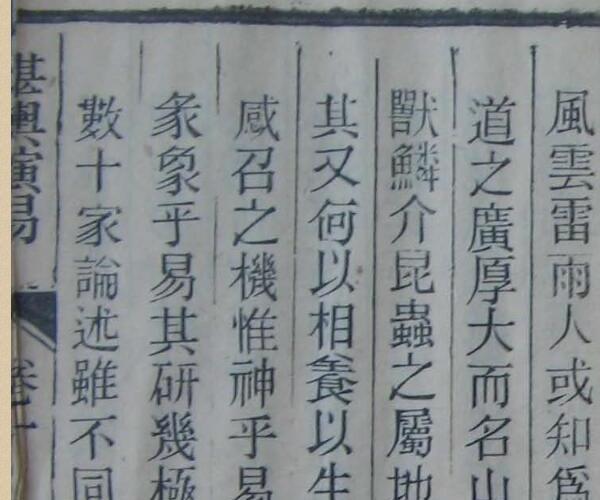 風雲雷雨人或知爲
道之廣厚大而名山
獸鱗介昆蟲之屬地
其又何以相養以生
感召之機惟神乎易
彖象乎易其研幾極
數十家論述雖不同
堪輿演易 卷一